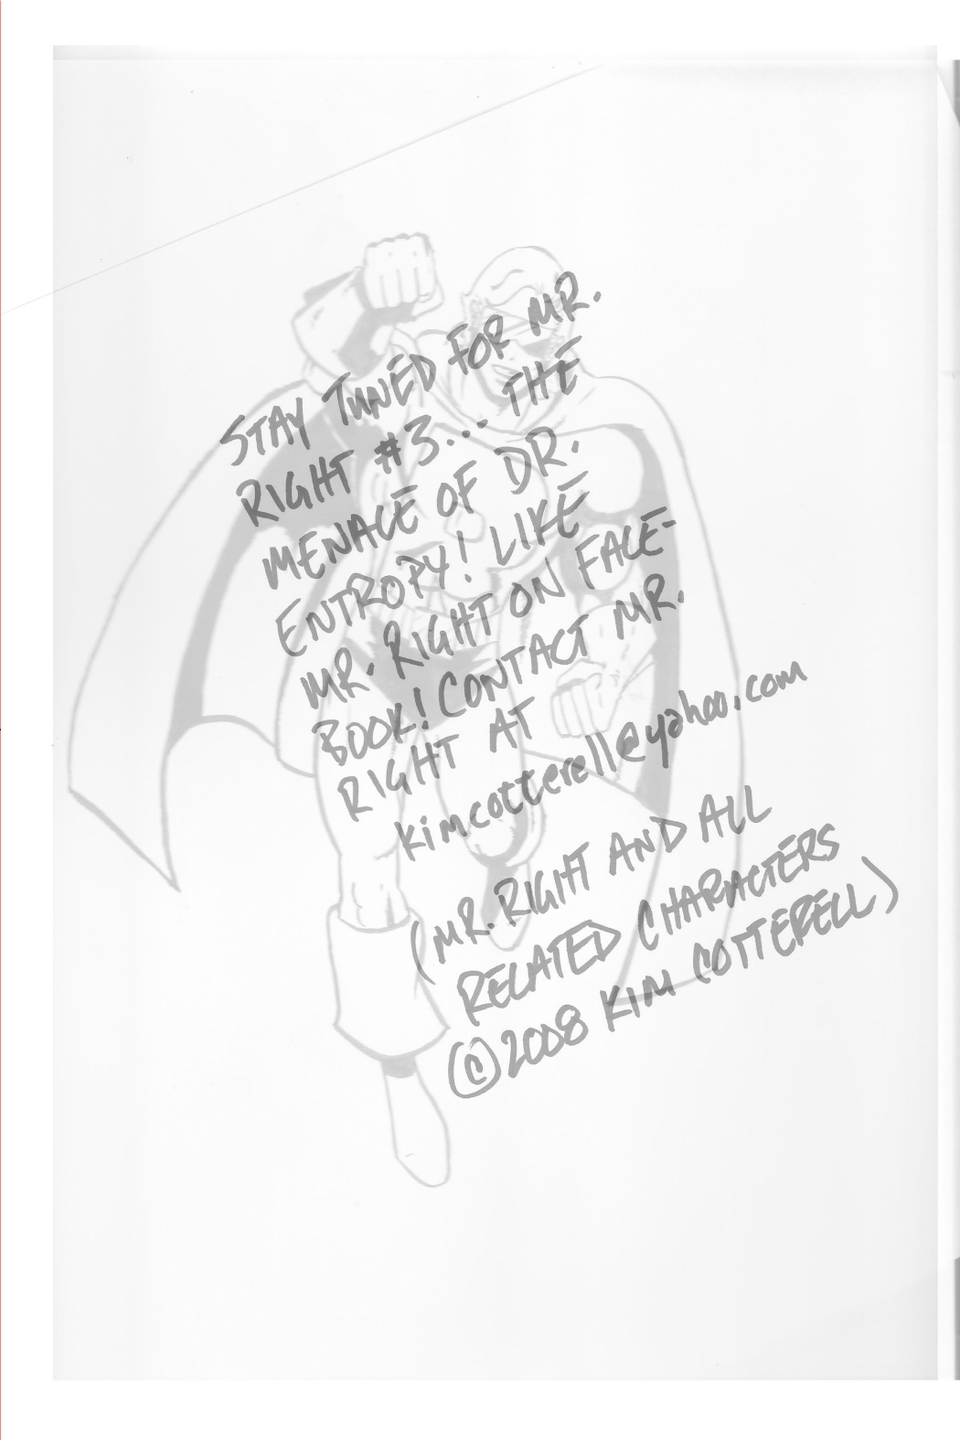 STAY TUNED FOR MR.
RIGHT #3... THE
MENACE OF DR.
ENTROPY! LIKE
MR. RIGHT ON FACE-
BOOK! CONTACT MR.
RIGHT AT
kimcotterell@yahoo.com
(MR. RIGHT AND ALL
RELATED CHARACTERS
©2008 KIM COTTERELL)